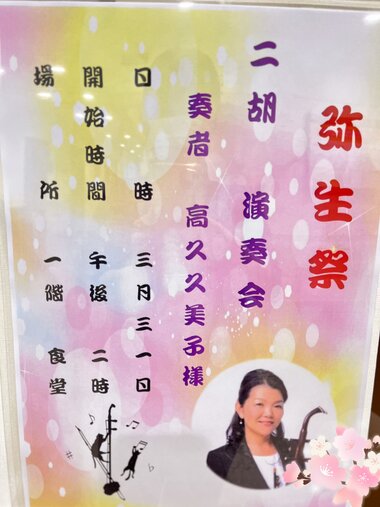 弥生祭
二胡 演奏会
奏者 高久久美子様
日時 三月三一日
開始時間 午後二時
場所 一階 食堂